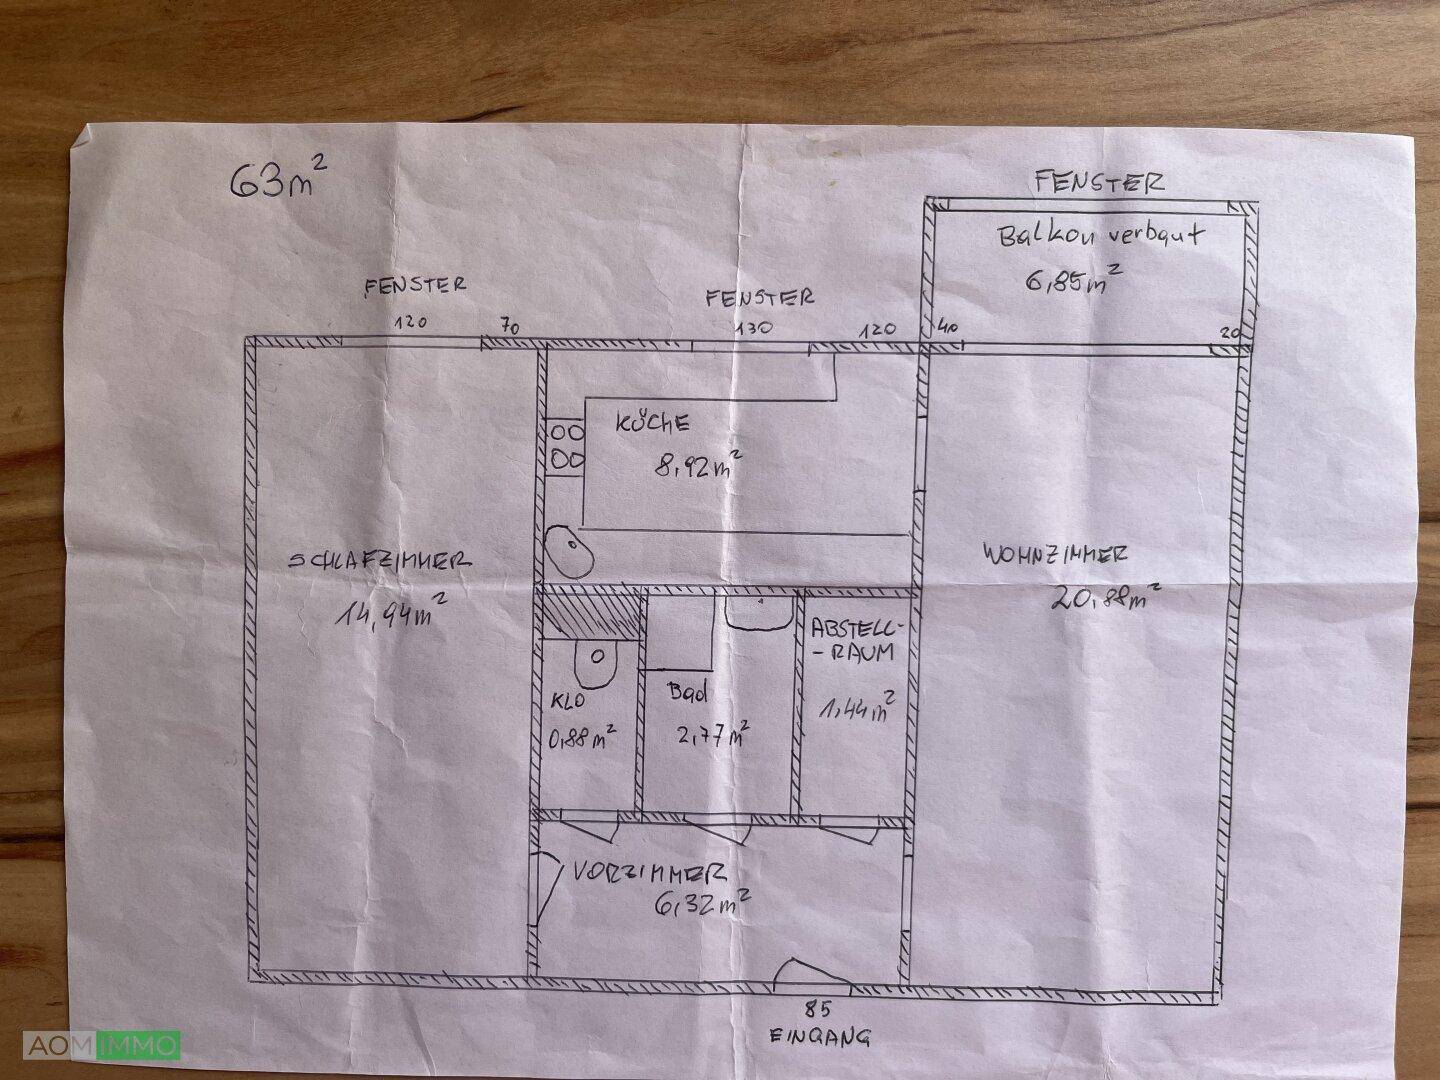 63m²
FENSTER
Balkon verbaut
6,85m²
FENSTER
FENSTER
120
70
130
120
40
20
KÜCHE
8,92m²
SCHLAFZIMMER
14,94m²
WOHNZIMMER
20,88m²
ABSTELL-
-RAUM
1,44m²
KLO
0,88m²
Bad
2,77m²
VORZIMMER
6,32m²
85
EINGANG
AOMIMMO